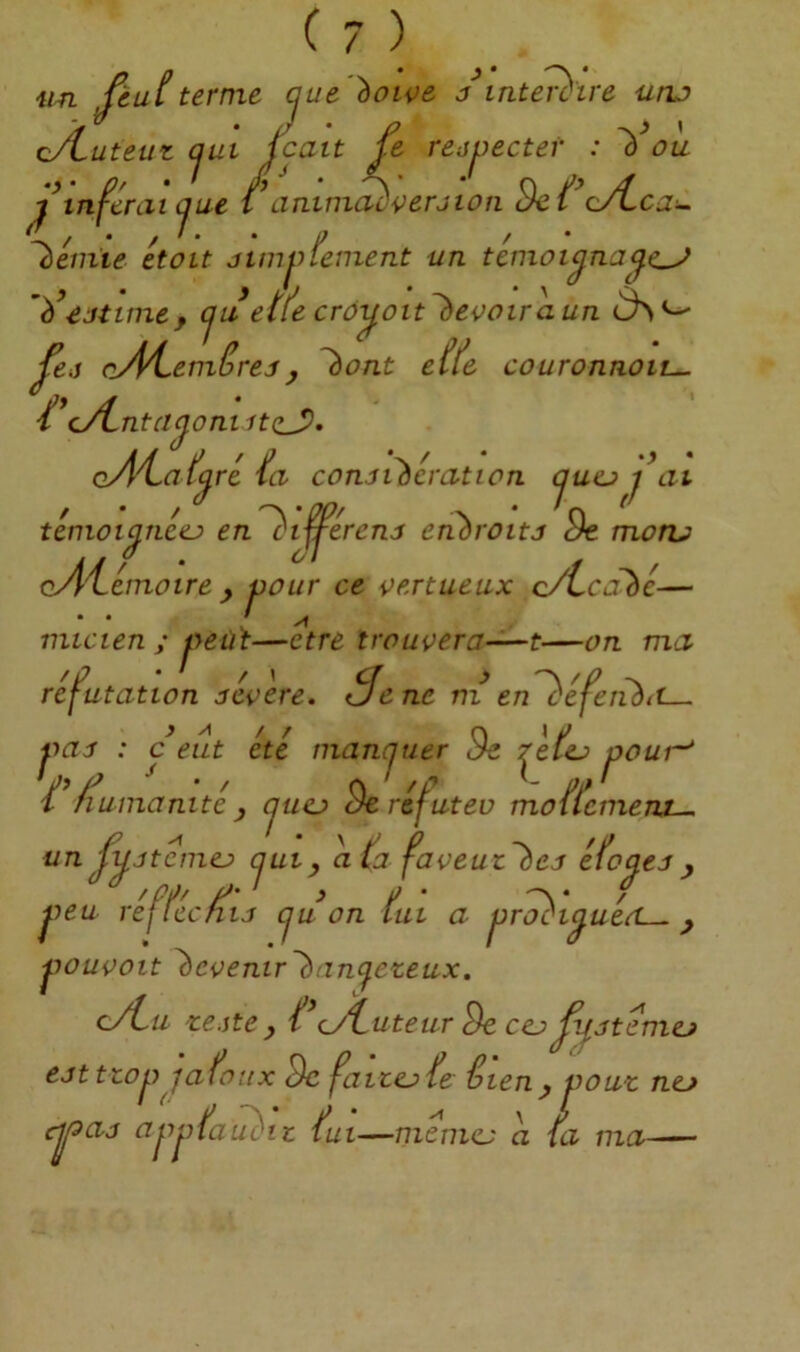 ( 7 )
un seul terme que doive s'interdire un
Auteur qui sçait se respecter : d'où
j'inférai que l'animadversion de l'Aca-
démie étoit simplement un témoignage
d'estime, qu'elle croyoit devoir à un de
ses Membres, dont elle couronnoit
l'Antagoniste.
Malgré la considération que j'ai
témoignée en différens endroits de mon
Mémoire, pour ce vertueux Acadé-
micien ; peut-être trouvera-t-on ma
réfutation sévère. Je ne m'en défends
pas : c'eût été manquer de zèle pour
l'humanité, que de réfuter mollement
un systême qui, à la faveur des éloges,
peu réfléchis qu'on lui a prodigués,
pouvoit devenir dangereux.
Au reste, l'Auteur de ce systême
est trop jaloux de faire le bien, pour ne
pas applaudir lui-même à la ma-